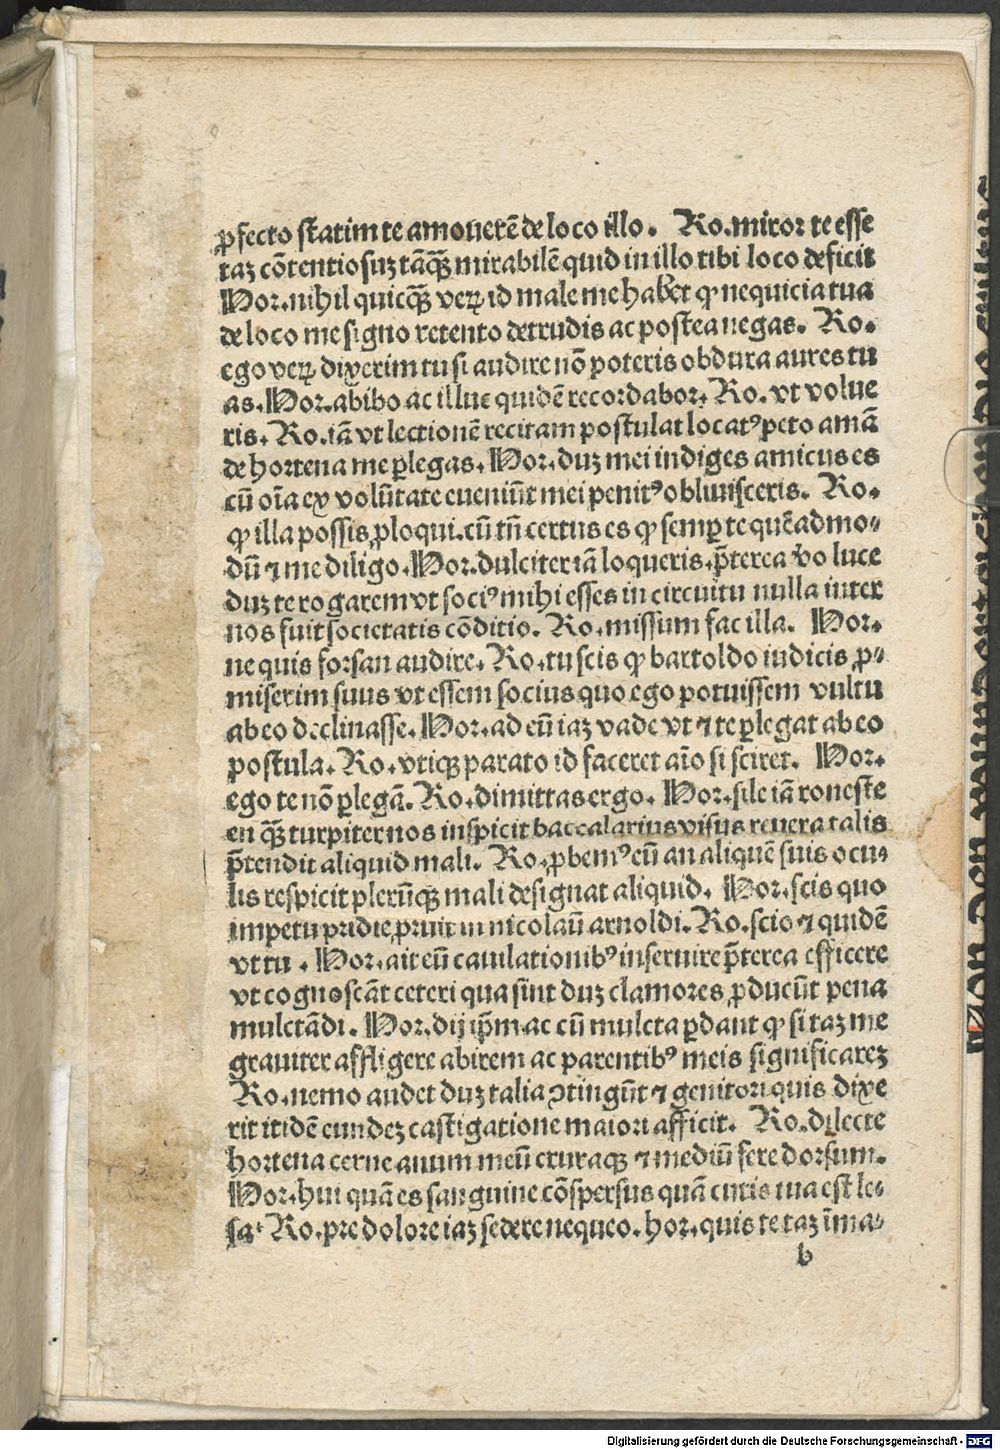 ꝓfecto statim te amouerē de loco illo. Ro. miror te esse
taꝫ cōtentiosuꝫ tāqꝫ̄ mirabilē quid in illo tibi loco deficit
Hor. nihil quicqꝫ̄ veꝝ id male me habet ꝙ nequicia tua
de loco me signo retento detrudis ac postea negas. Ro.
ego veꝝ dixerim tu si audire nō poteris obdura aures tu
as. Hor. abibo ac illuc quidē recordabor. Ro. vt volue
ris. Ro. iā vt lectionē recitam postulat locatꝰ peto amā
de hortena me ꝑlegas. Hor. duꝫ mei indiges amicus es
cū oīa ex volūtate eueniūt mei penitꝰ obliuisceris. Ro.
ꝙ illa possis ꝓloqui. cū tn̄ certus es ꝙ semꝑ te quēadmo-
dū ⁊ me diligo. Hor. dulciter iā loqueris. p̄terea v̄o luce
duꝫ te rogarem vt sociꝰ mihi esses in circuitu nulla inter
nos fuit societatis cōditio. Ro. missum fac illa. Hor.
ne quis forsan audire. Ro. tu scis ꝙ bartoldo iudicis ꝓ-
miserim suus vt essem socius quo ego potuissem vultu
ab eo declinasse. Hor. ad eū iaꝫ vade vt ⁊ te ꝑlegat ab eo
postula. Ro. vtiqꝫ parato id faceret aīo si sciret. Hor.
ego te nō ꝑlegā. Ro. dimittas ergo. Hor. sile iā roneste
en qꝫ̄ turpiter nos inspicit baccalarius visus reuera talis
p̄tendit aliquid mali. Ro. ꝓbemꝰ eū an aliquē suis ocu-
lis respicit plerūqꝫ mali designat aliquid. Hor. scis quo
impetu pridie ꝓruit in nicolaū arnoldi. Ro. scio ⁊ quidē
vt tu. Hor. ait eū cauilationibꝰ inseruire p̄terea efficere
vt cognoscāt ceteri qua sint duꝫ clamores ꝓducūt pena
mulctādi. Hor. dij ip̄m ac cū mulcta ꝑdant ꝙ si taꝫ me
grauiter affligere abirem ac parentibꝰ meis significareꝫ
Ro. nemo audet duꝫ talia ꝯtingūt ⁊ genitori quis dixe
rit itidē eundeꝫ castigatione maiori afficit. Ro. dilecte
hortena cerne anum meū cruraqꝫ ⁊ mediū fere dorsum.
Hor. hui quā es sanguine cōspersus quā cutis tua est le-
sa. Ro. pre dolore iaꝫ sedere nequeo. hor. quis te taꝫ īma-
b
Digitalisierung gefördert durch die Deutsche Forschungsgemeinschaft - DFG